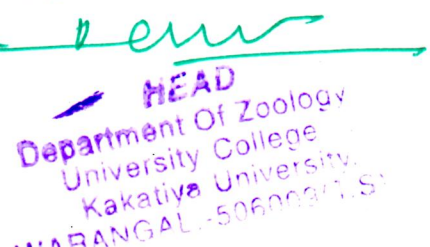 HEAD
Department Of Zoology
University College
Kakatiya University.
WARANGAL.-506009(T.S)